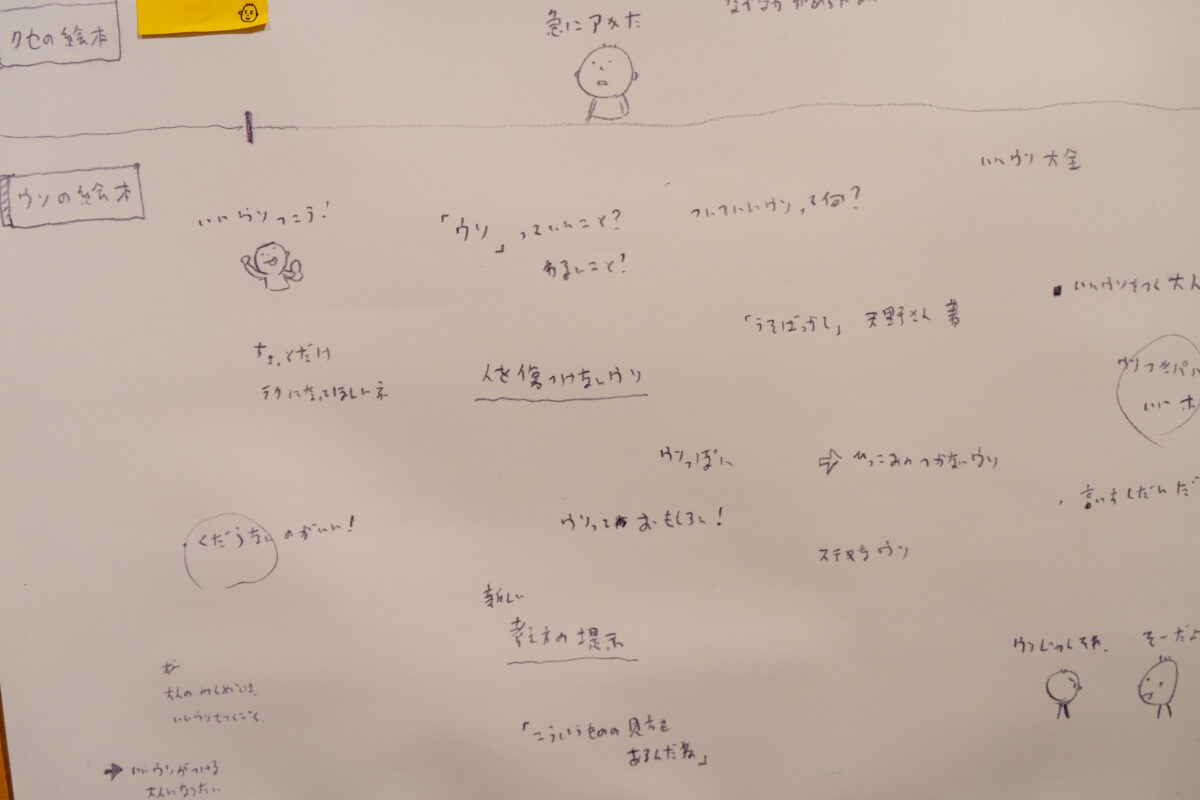 クセの絵本
急にアメだ
ウソの絵本
いいウソつこう!
「ウソ」っていいこと?
わるいこと?
ついていいウソって何?
いいウソ大全
いいウソをつく大人
「うそばっかし」 天野さん 著
ちょっとだけ
ラクになってほしいネ
人を傷つけないウソ
ウソつきパパ
いいホ
ウソっぽい
⇨ ひっこみのつかないウソ
くだらないのがいい!
ウソっておもしろい!
ステキなウソ
新しい
考え方の提示
ウソじゃん
そーだよ
大人のやくめは、
いいウソをつくこと、
「こういうものの見方も
あるんだね」
➔ いいウソがつける
大人になりたい